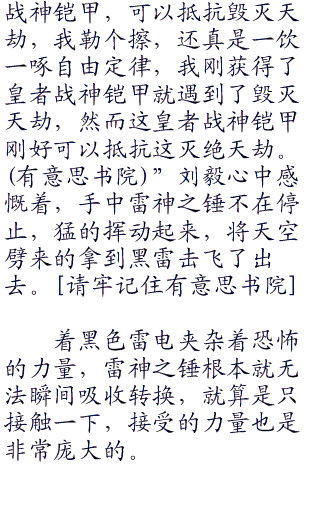 战神铠甲，可以抵抗毁灭天
劫，我勒个擦，还真是一饮
一啄自由定律，我刚获得了
皇者战神铠甲就遇到了毁灭
天劫，然而这皇者战神铠甲
刚好可以抵抗这灭绝天劫。
(有意思书院)”刘毅心中感
慨着，手中雷神之锤不在停
止，猛的挥动起来，将天空
劈来的拿到黑雷击飞了出
去。[请牢记住有意思书院]
着黑色雷电夹杂着恐怖
的力量，雷神之锤根本就无
法瞬间吸收转换，就算是只
接触一下，接受的力量也是
非常庞大的。